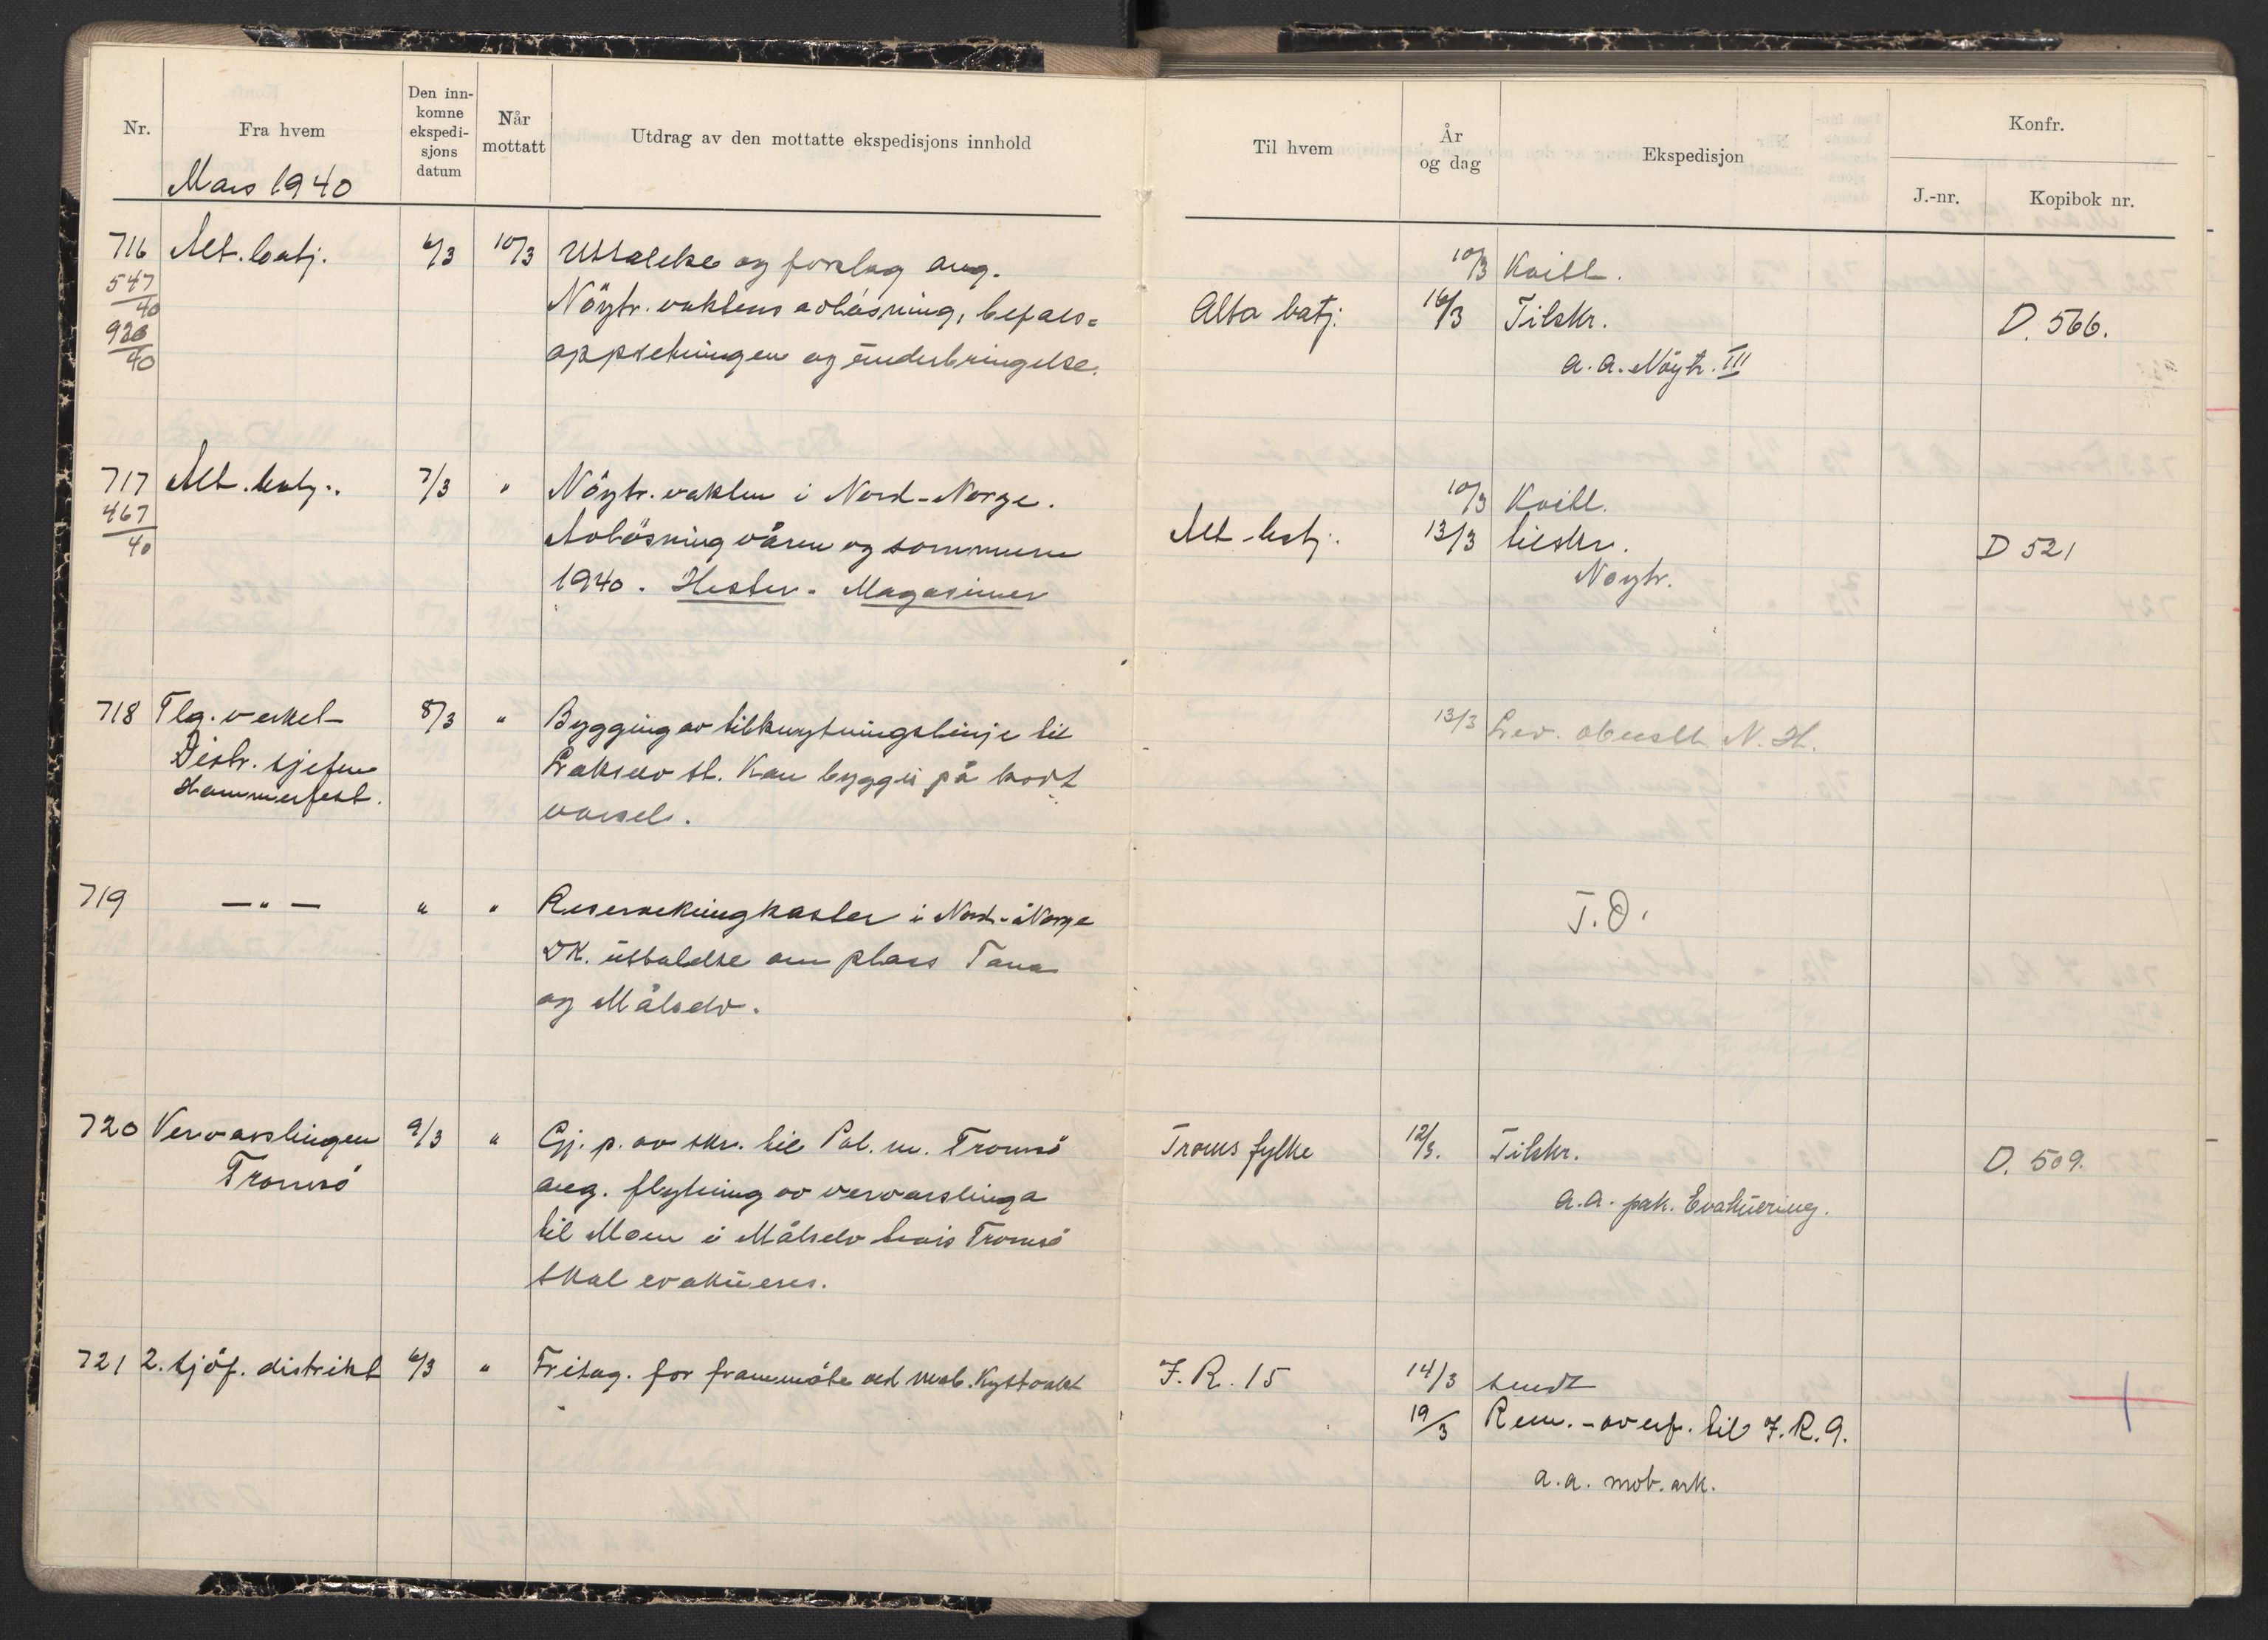 Nr.
Fra hvem
Den inn-
komne
ekspedi-
sjons
datum
Når
mottatt
Utdrag av den mottatte ekspedisjons innhold
Til hvem
År
og dag
Ekspedisjon
Konfr.
J.-nr.
Kopibok nr.
Mars 1940
716 Alt. batj. 6/3 10/3 Uttalelse og forslag ang.
547/40
Nöytr. vaktens avlösning, befals=
928/40
oppsetningen og underbringelse.
10/3 Kvitt.
Alta batj. 16/3 Tilskr. D. 566.
a. a. Nöytr. III
717 Alt. batj. 7/3 " Nöytr. vakten i Nord-Norge.
467/40
Avlösning våren og sommeren
1940. Hester. Magasiner
10/3 Kvitt.
Alt. batj. 13/3 tilskr. D 521
Nöytr.
718 Tlg. verket 8/3 " Bygging av tilknytningslinje til
Distr. sjefen
Lakselv st. Kan bygges på kort
Hammerfest.
varsel.
13/3 Lev. oberstl. N. H.
719 — " — " " Reservekringkaster i Nord-Norge
DK. uttalelse om plass Tana
og Målselv.
T.O.
720 Vervarslingen 9/3 " Gj. p. av skr. til Pol. m. Tromsö
Tromsö
ang. flytning av vervarslinga
til Moen i Målselv hvis Tromsö
skal evakueres.
Troms fylke 12/3. Tilskr. D. 509.
a. a. pak. Evakuering.
721 2. sjöf. distrikt 6/3 " Fritag. for frammöte ved mob. Kystvakt
I. R. 15 14/3 sendt
19/3 Rem. - overf. til I. R. 9.
a. a. mob. ark.